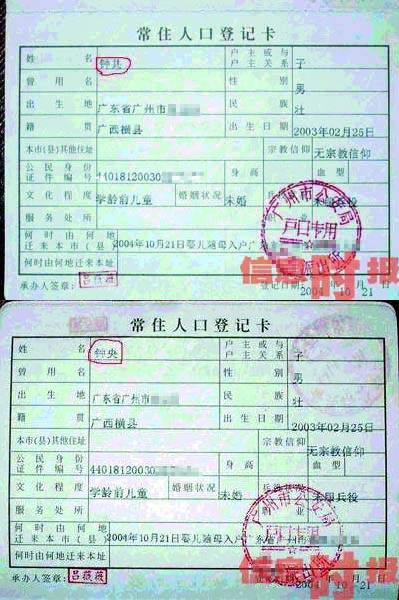 常住人口登记卡
姓名 钟共 户主或与户主关系 子
曾用名 性别 男
出生地 广东省广州市 民族 壮
籍贯 广西横县 出生日期 2003年02月25日
本市(县)其他住址 宗教信仰 无宗教信仰
公民身份证件编号 44018120030 身高 血型
文化程度 学龄前儿童 婚姻状况 未婚
服务处所
何时由何地迁来本市(县) 2004年10月21日婴儿随母入户广
何时由何地迁来本址
承办人签章: 吕薇薇 登记日期: 2004 10 21
广州市公安局
户口专用
派出所
信息时报
常住人口登记卡
姓名 钟央 户主或与户主关系 子
曾用名 性别 男
出生地 广东省广州市 民族 壮
籍贯 广西横县 出生日期 2003年02月25日
本市(县)其他住址 宗教信仰 无宗教信仰
公民身份证件编号 44018120030 身高 血型
文化程度 学龄前儿童 婚姻状况 未婚 未服兵役
服务处所
何时由何地迁来本市(县) 2004年10月21日婴儿随母入户广东省广州市
何时由何地迁来本址
承办人签章: 吕薇薇 2004 10 21
广州市公安局
户口专用
信息时报